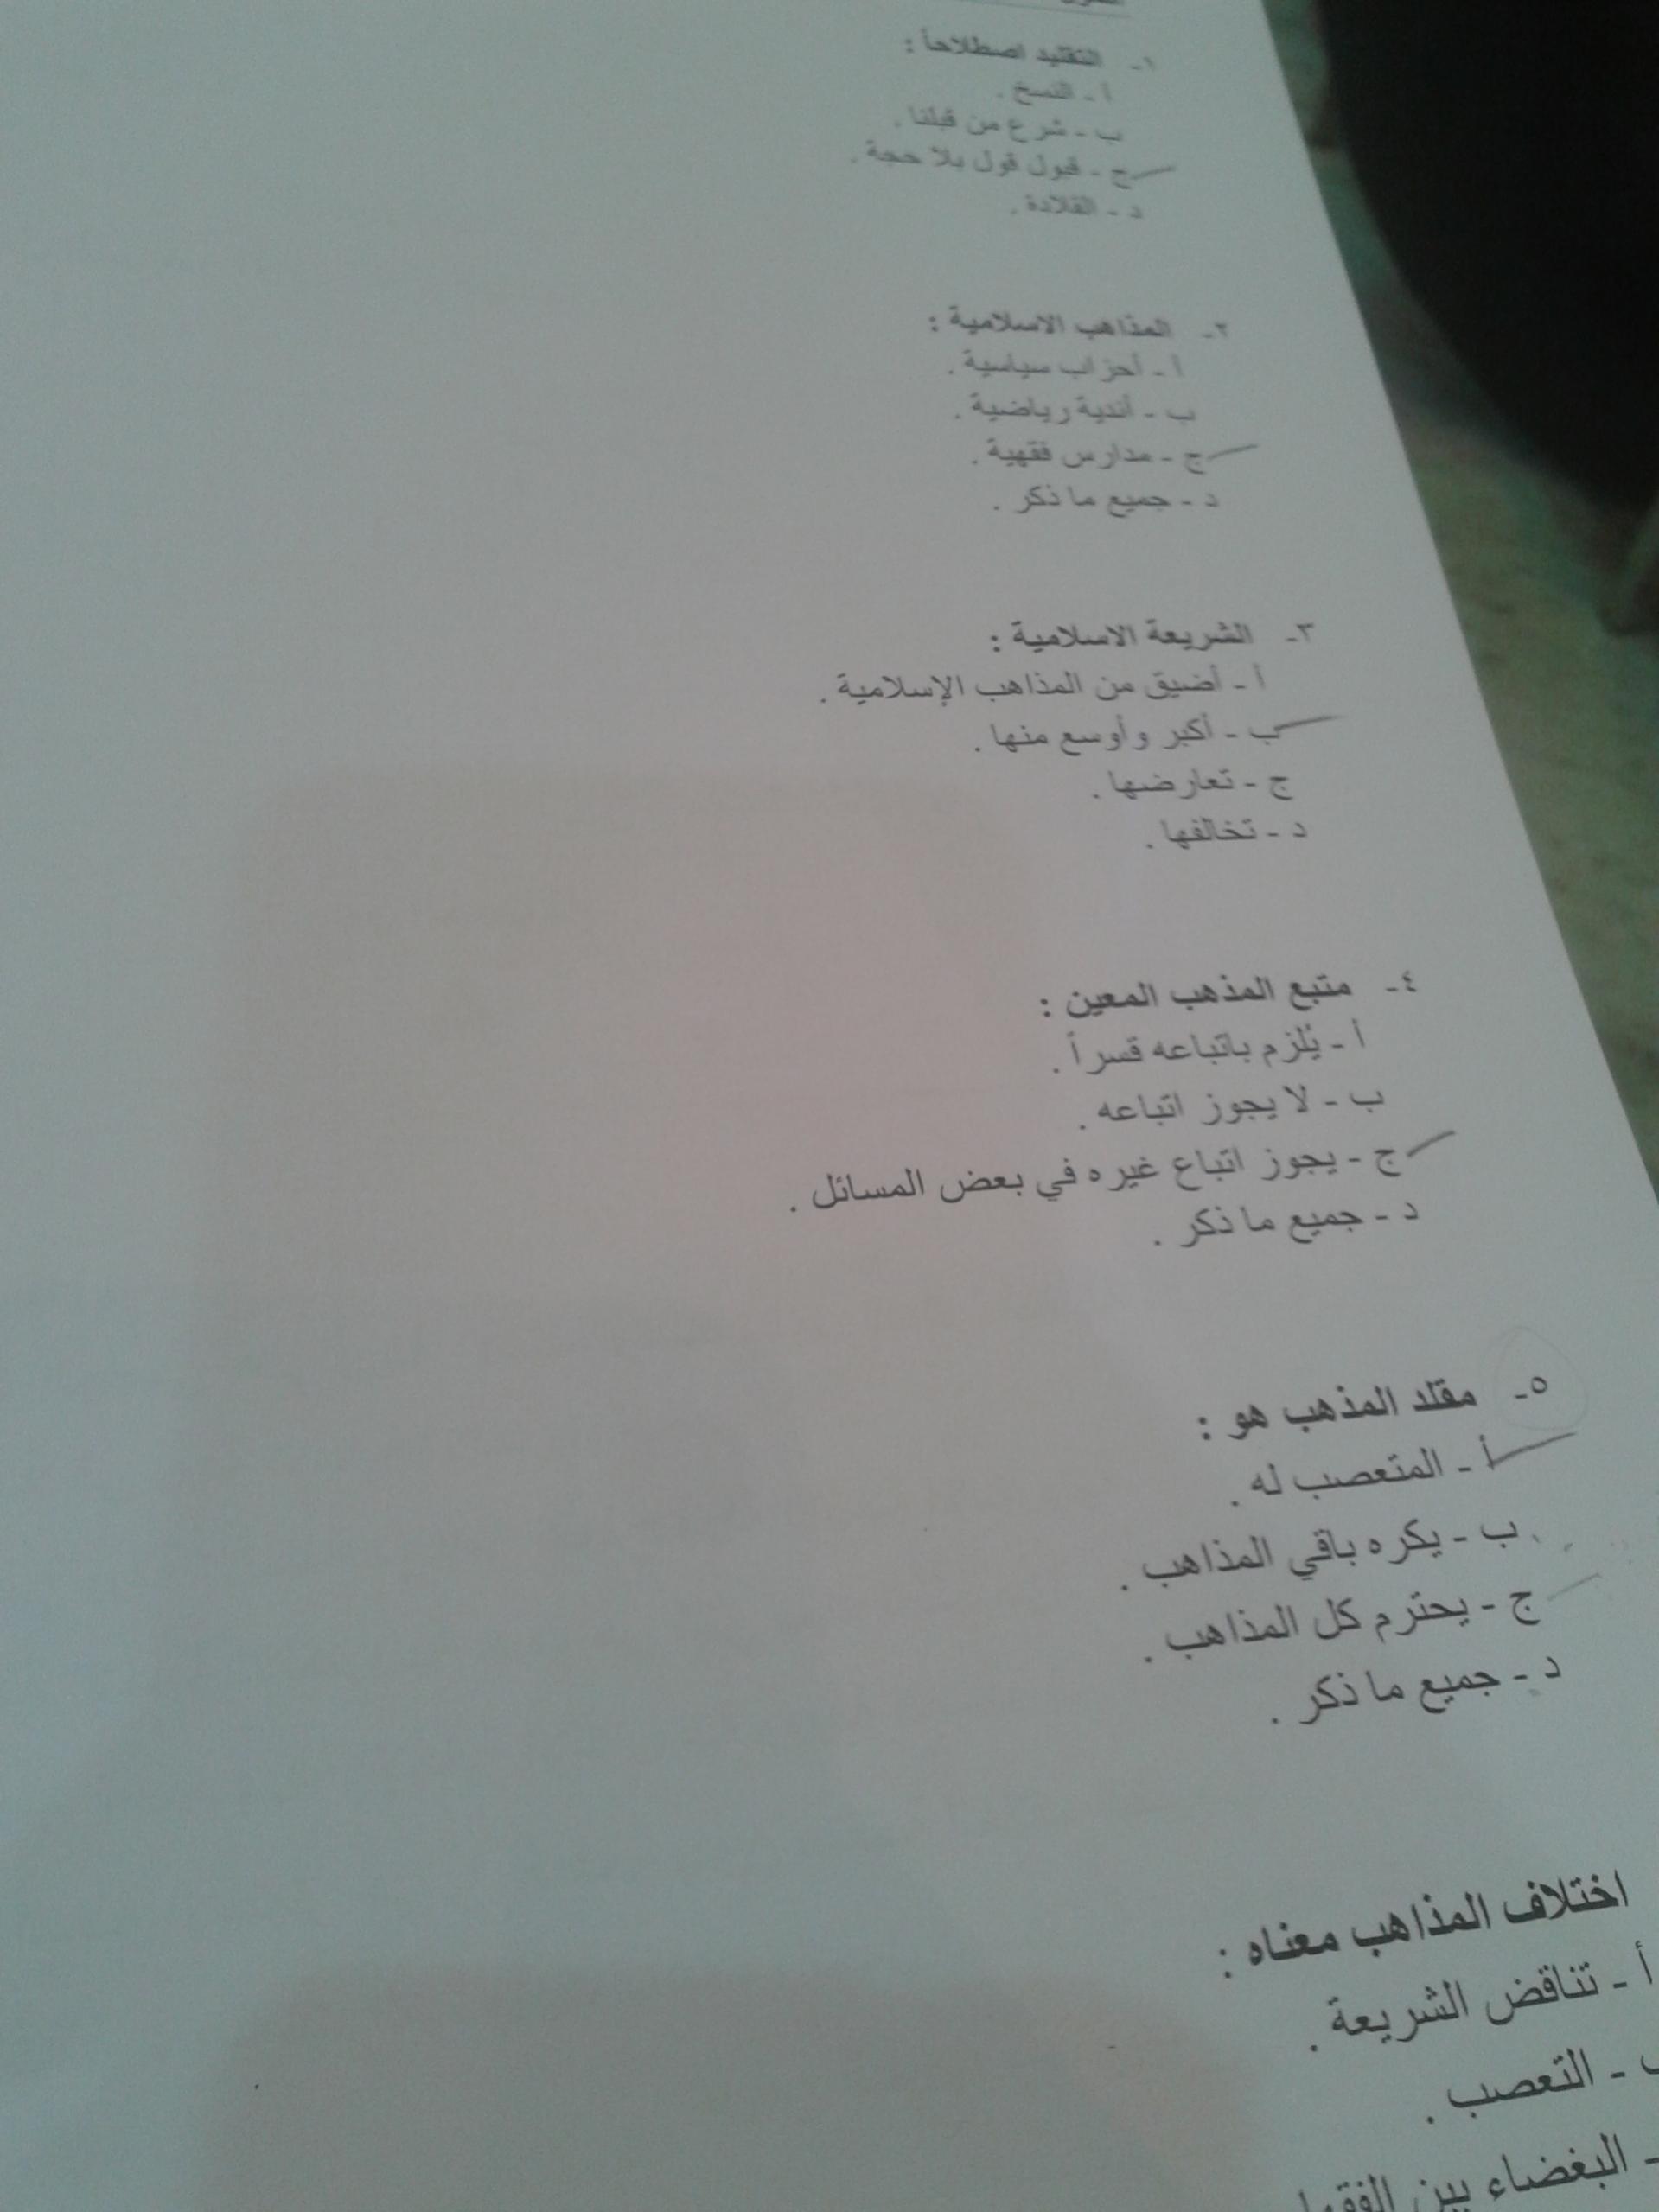 ١- التقليد اصطلاحاً :
أ - النسخ .
ب - شرع من قبلنا .
ج - قبول قول بلا حجة .
د - القلادة .
٢- المذاهب الاسلامية :
أ - أحزاب سياسية .
ب - أندية رياضية .
ج - مدارس فقهية .
د - جميع ما ذكر .
٣- الشريعة الاسلامية :
أ - أضيق من المذاهب الإسلامية .
ب - أكبر وأوسع منها .
ج - تعارضها .
د - تخالفها .
٤- متبع المذهب المعين :
أ - يُلزم باتباعه قسراً .
ب - لا يجوز اتباعه .
ج - يجوز اتباع غيره في بعض المسائل .
د - جميع ما ذكر .
٥- مقلد المذهب هو :
أ - المتعصب له .
ب - يكره باقي المذاهب .
ج - يحترم كل المذاهب .
د - جميع ما ذكر .
اختلاف المذاهب معناه :
أ - تناقض الشريعة .
ب - التعصب .
- البغضاء بين